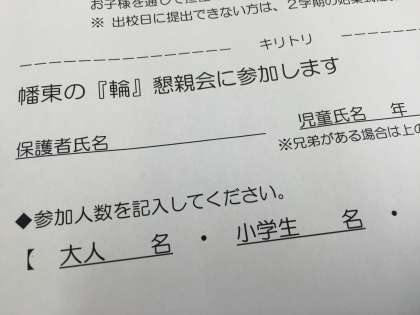 お子様を通じて担任
※ 出校日に提出できない方は、２学期の始業式
キリトリ
幡東の『輪』懇親会に参加します
保護者氏名
児童氏名 年
※兄弟がある場合は上の
◆参加人数を記入してください。
【 大人 名 ・ 小学生 名 ・